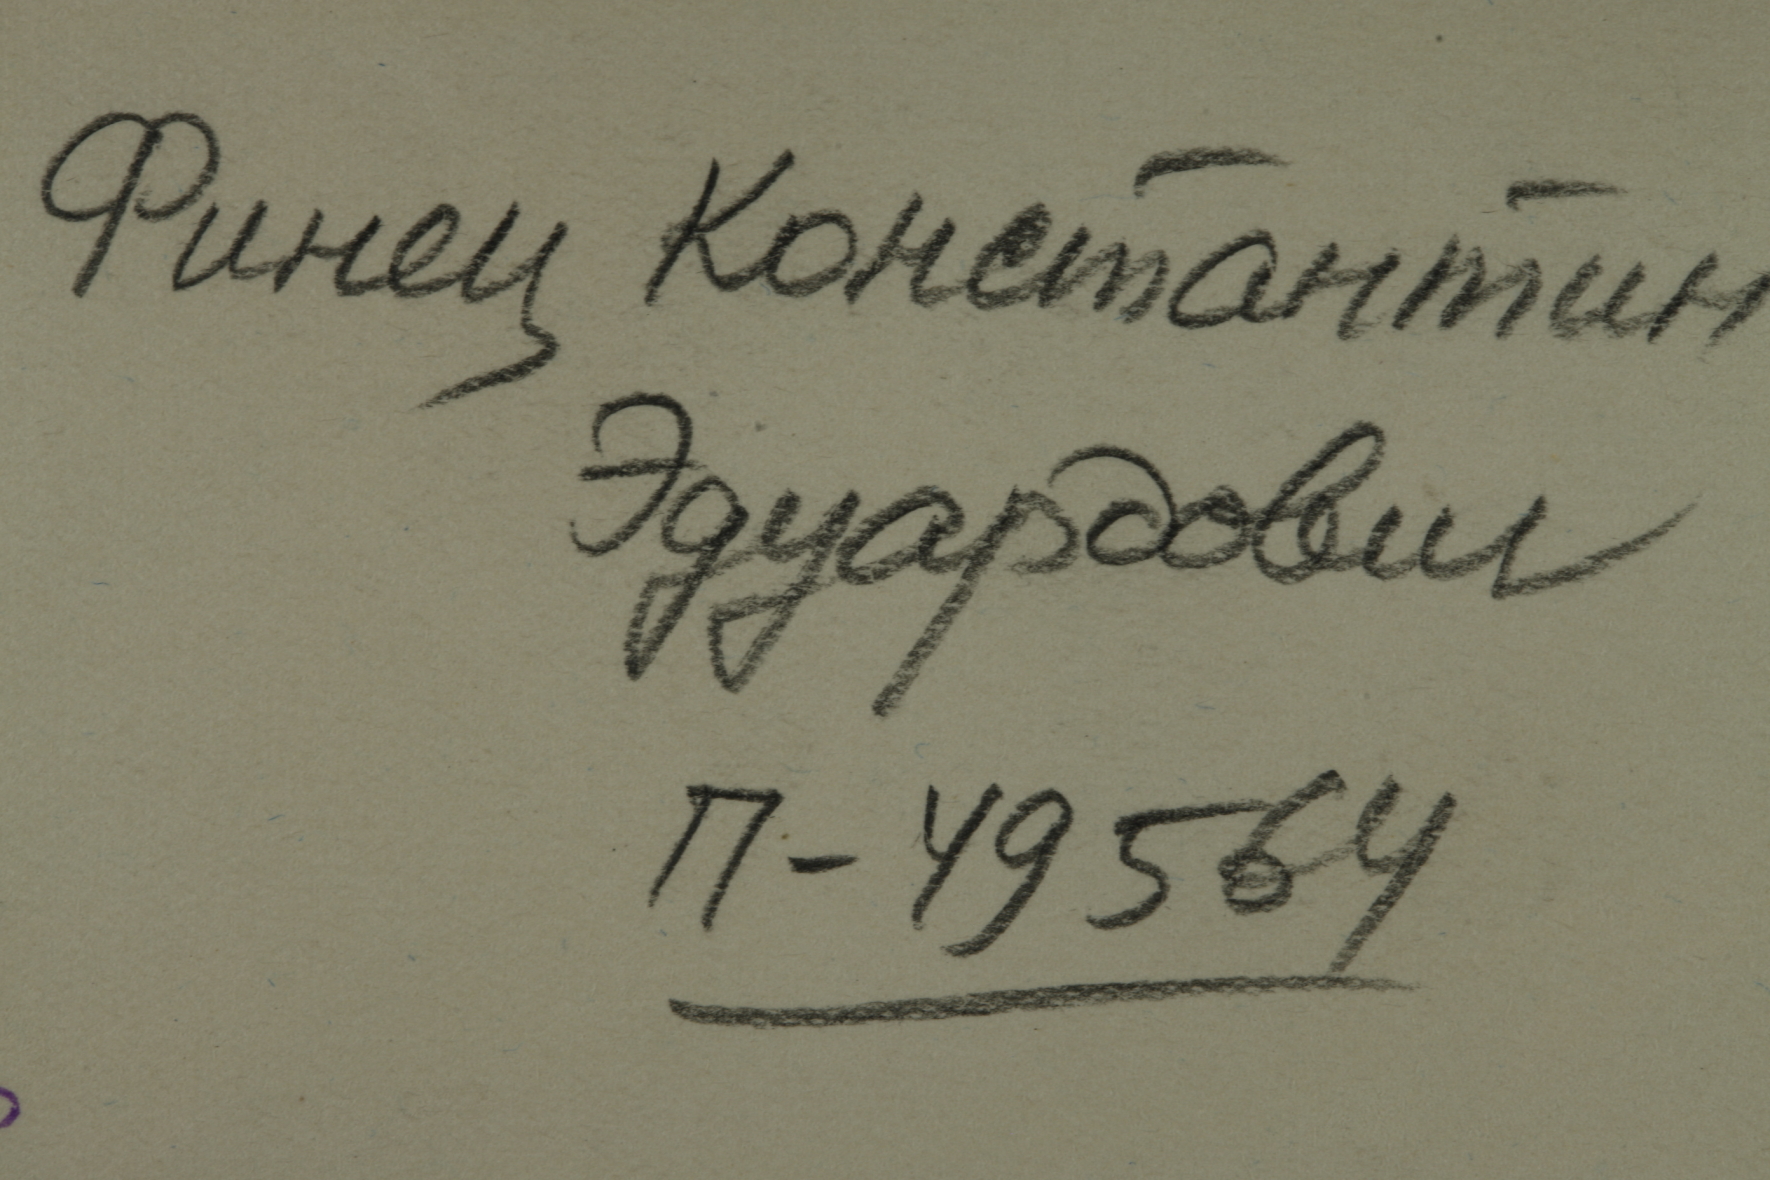 Финец Константин
Эдуардович
П-49564